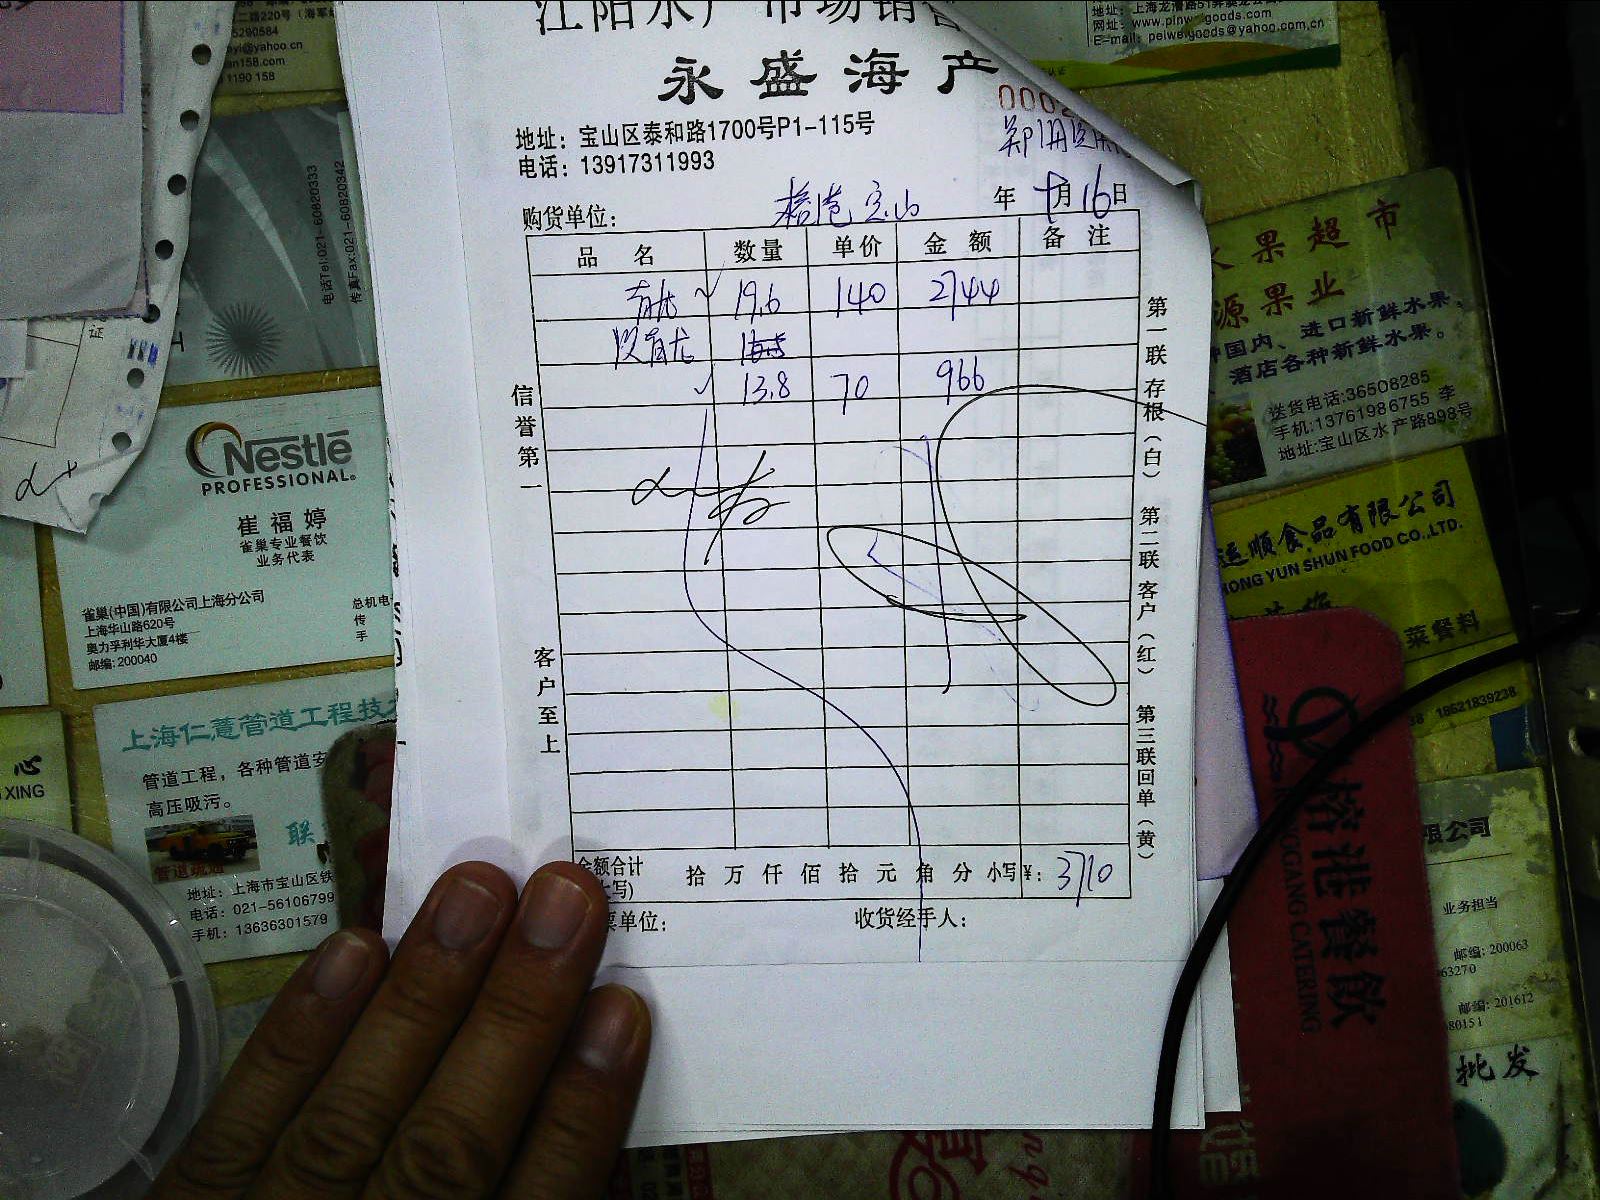 江阳水产市场销售
永盛海产
地址：宝山区泰和路1700号P1-115号
电话：13917311993
购货单位：
榕港宝山
年 月16日
品名 数量 单价 金额 备注
19.6 140 2744
13.8 70 966
信誉第一
客户至上
第一联存根（白） 第二联客户（红） 第三联回单（黄）
金额合计
拾 万 仟 佰 拾 元 角 分 小写¥：3710
票单位：
收货经手人：
二路220号（海军
5290584
yi@yahoo.cn
an158.com
1190 158
网址：www.pinweigoods.com
E-mail：peiweigoods@yahoo.com.cn
电话Tel:021-60820333
传真Fax:021-60820342
证
Nestlé
PROFESSIONAL
崔福婷
雀巢专业餐饮
业务代表
雀巢(中国)有限公司上海分公司
上海华山路620号
奥力孚利华大厦4楼
邮编：200040
总机电
传
手
心
XING
上海仁薏管道工程技
管道工程，各种管道安
高压吸污。
联
管道疏通
地址：上海市宝山区铁
电话：021-56106799
手机：13636301579
水果超市
源果业
国内、进口新鲜水果，
酒店各种新鲜水果。
送货电话:36508285
手机:13761986755 李
地址:宝山区水产路898号
运顺食品有限公司
HONG YUN SHUN FOOD CO.,LTD.
菜餐料
18621839238
榕港餐飲
RONGGANG CATERING
限公司
业务担当
邮编：200063
63270
邮编：201612
80151
批发